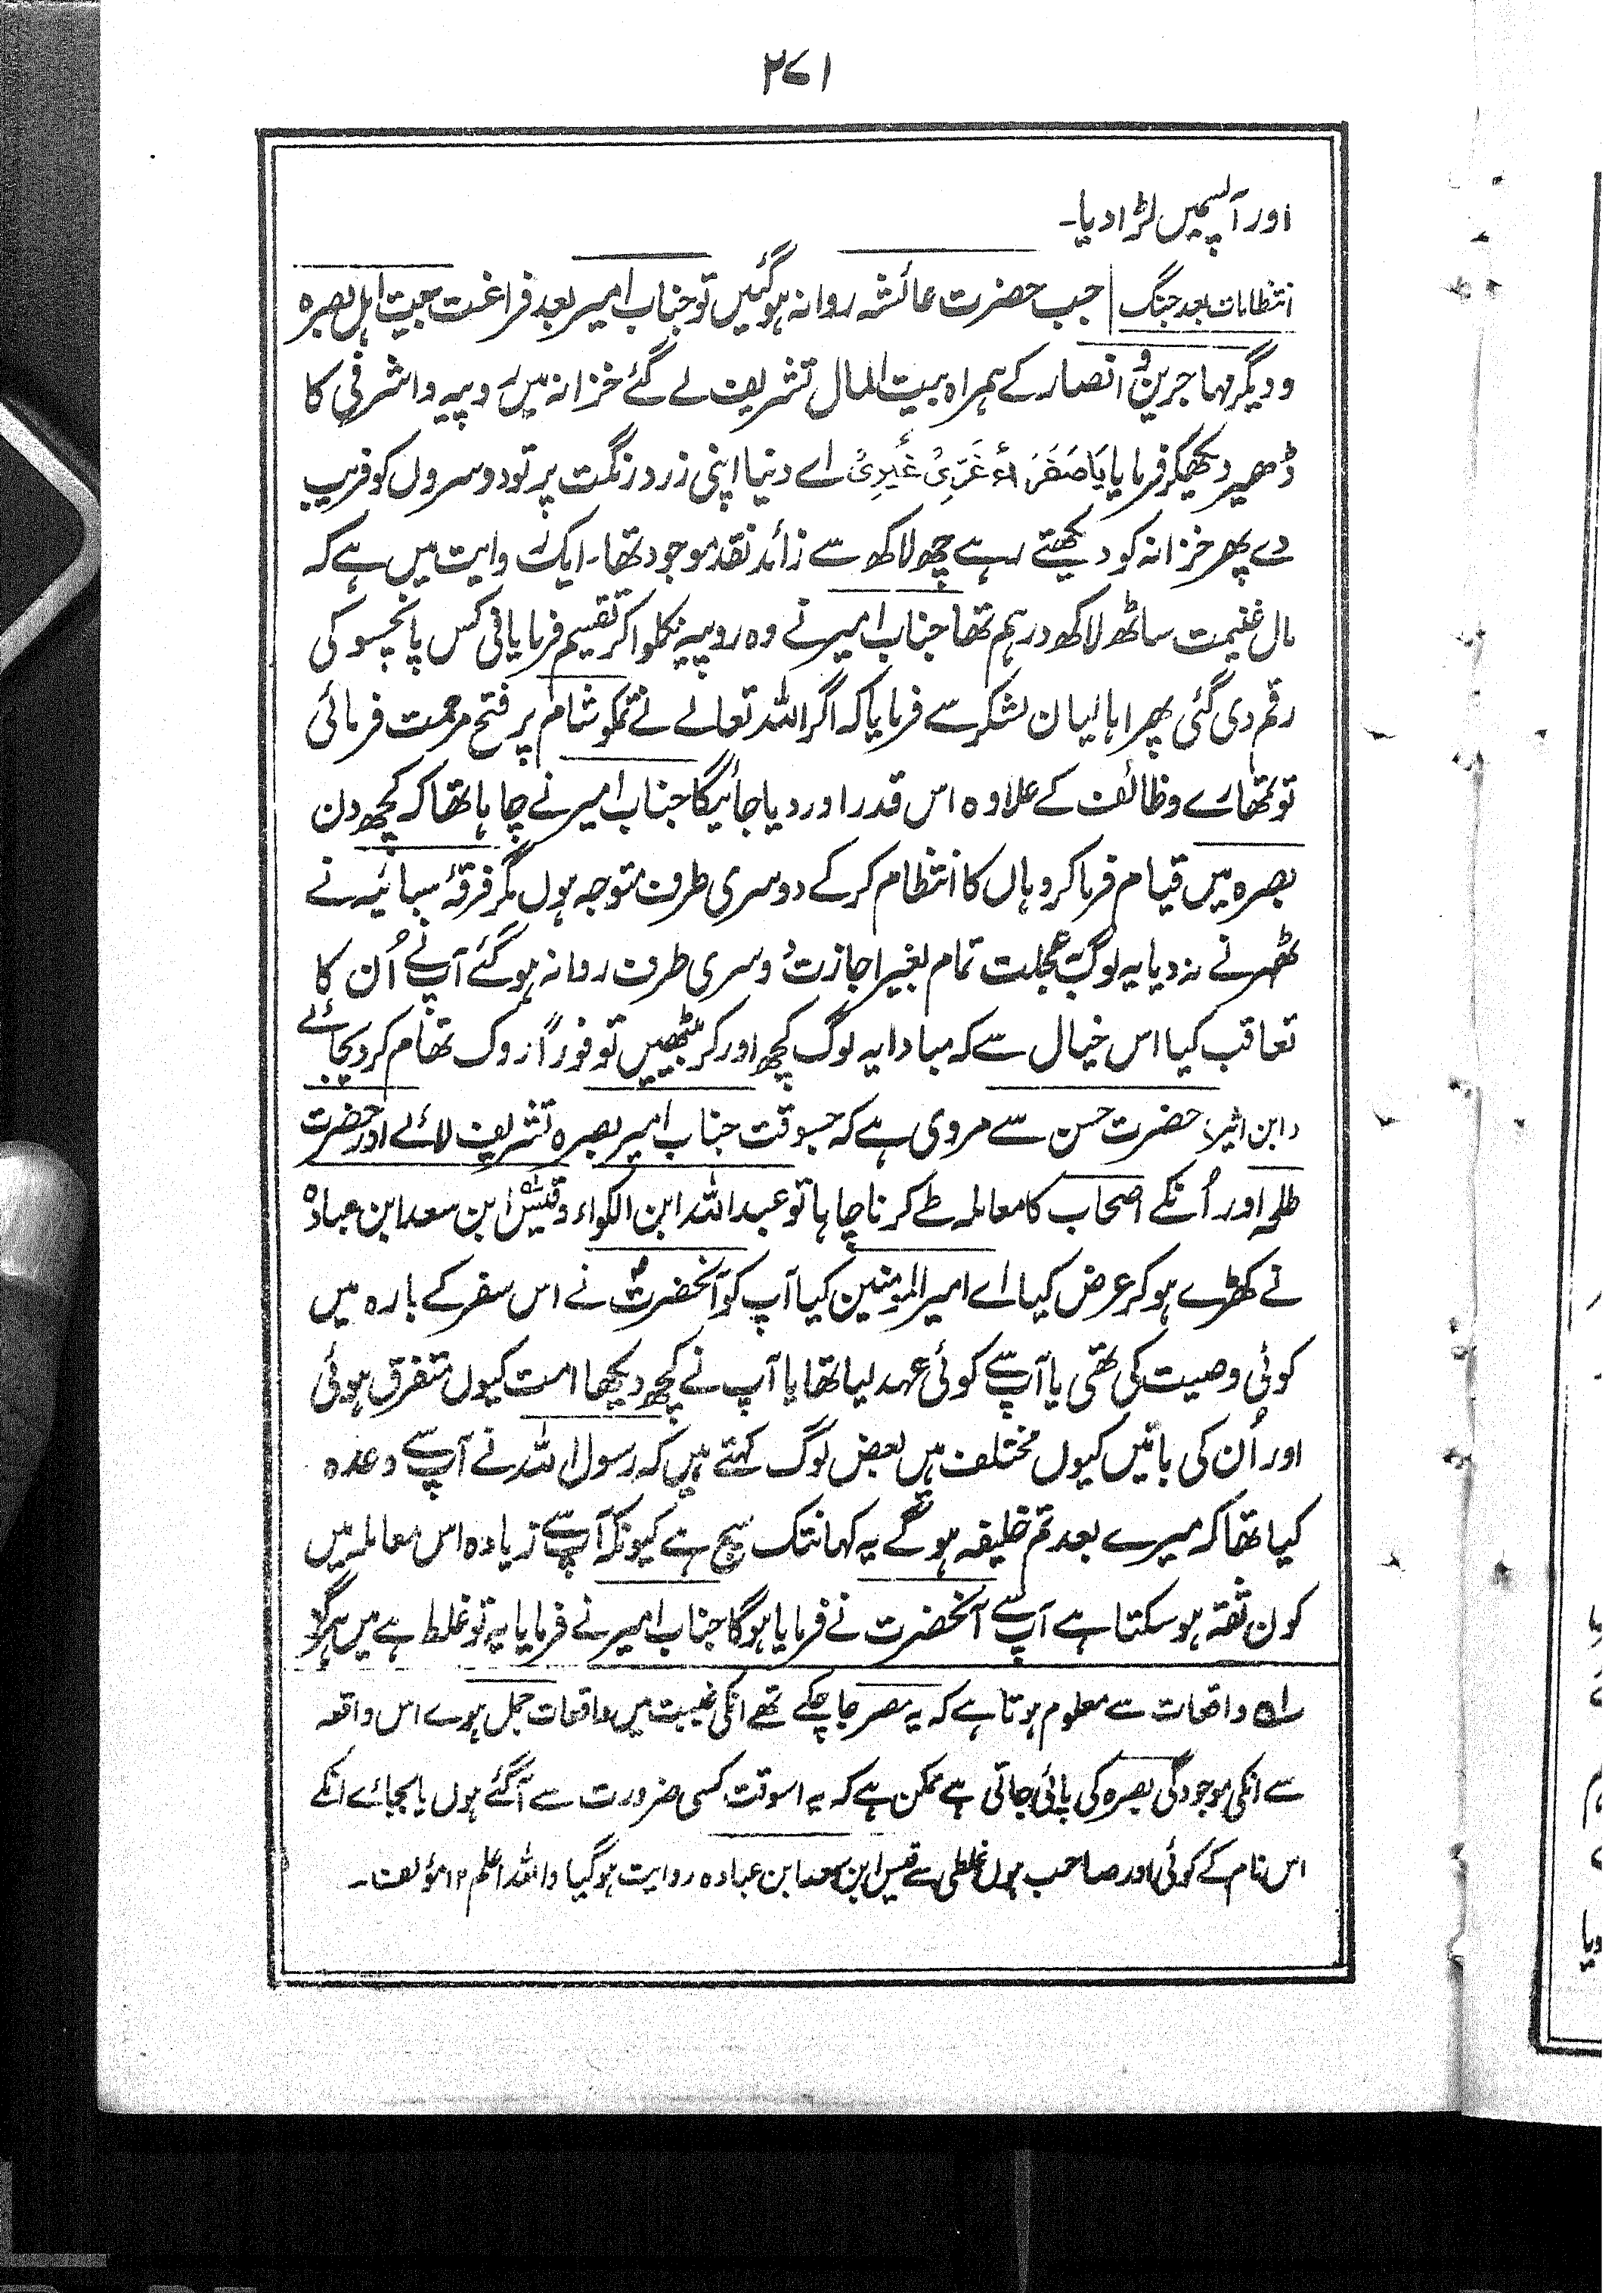 ۲۷۱
اور آپسمیں لڑا دیا۔
انتظامات بعد جنگ جب حضرت عائشہ روانہ ہوگئیں تو جناب امیر بعد فراغت بیعت اہل بصرہ
و دیگر مہاجرین و انصار کے ہمراہ بیت المال تشریف لے گئے خزانہ میں روپیہ و اشرفی کا
ڈھیر دیکھکر فرمایا یَا صَفَرَاءُ غَرِّیْ غَیْرِیْ اے دنیا اپنی زرد رنگت پر تو دوسروں کو فریب
دے پھر خزانہ کو دیکھتے رہے چھ لاکھ سے زائد نقد موجود تھا۔ ایک روایت میں ہے کہ
مال غنیمت ساٹھ لاکھ درہم تھا جناب امیر نے وہ روپیہ نکلوا کر تقسیم فرمایا فی کس پانچسو کی
رقم دی گئی پھر اہالیان لشکر سے فرمایا کہ اگر اللہ تعالے نے تمکو شام پر فتح مرحمت فرمائی
تو تمھارے وظائف کے علاوہ اس قدر اور دیا جائیگا جناب امیر نے چاہا تھا کہ کچھ دن
بصرہ میں قیام فرما کر وہاں کا انتظام کر کے دوسری طرف متوجہ ہوں مگر فرقۂ سبائیہ نے
ٹھہرنے نہ دیا یہ لوگ بعجلت تمام بغیر اجازت دوسری طرف روانہ ہو گئے آپ نے اُن کا
تعاقب کیا اس خیال سے کہ مبادا یہ لوگ کچھ اور کر بیٹھیں تو فوراً روک تھام کر دیجائے
(ابن اثیر) حضرت حسن سے مروی ہے کہ جسوقت جناب امیر بصرہ تشریف لائے اور حضرت
طلحہ اور اُنکے اصحاب کا معاملہ طے کرنا چاہا تو عبد اللہ ابن الکواء و قیس ابن سعد ابن عبادہ
نے کھڑے ہو کر عرض کیا اے امیر المومنین کیا آپ کو آنحضرتؐ نے اس سفر کے بارہ میں
کوئی وصیت کی تھی یا آپ سے کوئی عہد لیا تھا یا آپ نے کچھ دیکھا امت کیوں متفرق ہوئی
اور اُن کی باتیں کیوں مختلف ہیں بعض لوگ کہتے ہیں کہ رسول اللہ نے آپ سے وعدہ
کیا تھا کہ میرے بعد تم خلیفہ ہو گے یہ کہانتک سچ ہے کیونکہ آپ سے زیادہ اس معاملہ میں
کون ثقہ ہو سکتا ہے آپ سے آنحضرت نے فرمایا ہوگا جناب امیر نے فرمایا یہ تو غلط ہے میں ہرگز
لہ واقعات سے معلوم ہوتا ہے کہ یہ مصر جا چکے تھے انکی غیبت میں واقعات جمل ہوے اس واقعہ
سے انکی موجودگی بصرہ کی پائی جاتی ہے ممکن ہے کہ یہ اسوقت کسی ضرورت سے آگئے ہوں یا بجائے انکے
اس نام کے کوئی اور صاحب ہوں غلطی سے قیس ابن سعد ابن عبادہ روایت ہو گیا واللہ اعلم ۱۲ مؤلف۔